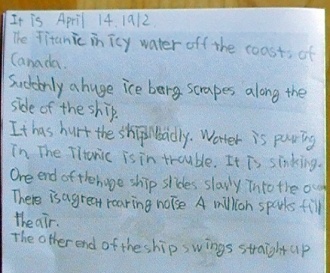 It is April 14 1912.
The Titanic in icy water off the coasts of
Canada.
Suddenly a huge ice berg scrapes along the
side of the ship.
It has hurt the ship badly. Watter is pouring
in. The Titanic is in trouble. It is sinking.
One end of the huge ship slides slowly into the
There is a great roaring noise A million sparks fill
the air.
The other end of the ship swings straight up